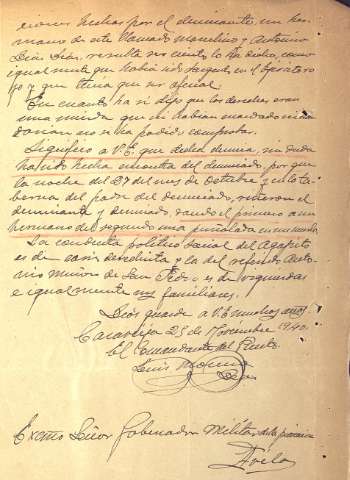 ciones hechas por el denunciante, un her-
mano de este llamado Marcelino y Antonio
Díaz Díaz, resulta ser cierto lo ha dicho, como
igualmente que había sido Sargento en el Ejército ro
jo y que tenia que ser oficial
En cuanto ha si dijo que los derechos eran
una mierda que ni habían mandado ni man
darían no se ha podido comprobar.
Significo a V.E. que dicha denuncia, sin duda
ha sido hecha en contra del denunciado, por que
la noche del 27 del mes de Octubre, en la ta-
berna del padre del denunciado, riñeron el
denunciante y denunciado, dando el primero a un
hermano del segundo una puñalada en un
La conducta político social del Agapito
es de derechista y la del referido Anto-
nio Muñoz de San Pedro es de izquierdas
e igualmente sus familiares.
Dios guarde a V.E. muchos años
25 de Noviembre 1940.
El Comandante del Puesto
Luis Moreno
Excmo Señor Gobernador Militar de la provincia
Avila